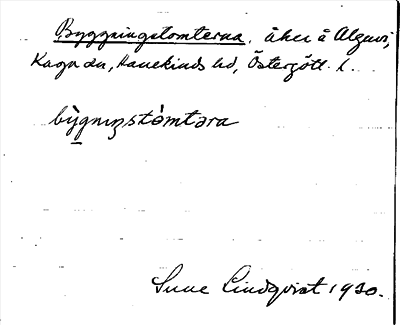 Byggningstomterna, åker å Algusi,
Kaga sn, Hanekinds hd, Östergötl. l.
bỳgnıŋstòmtəra
Sune Lindqvist 1930.